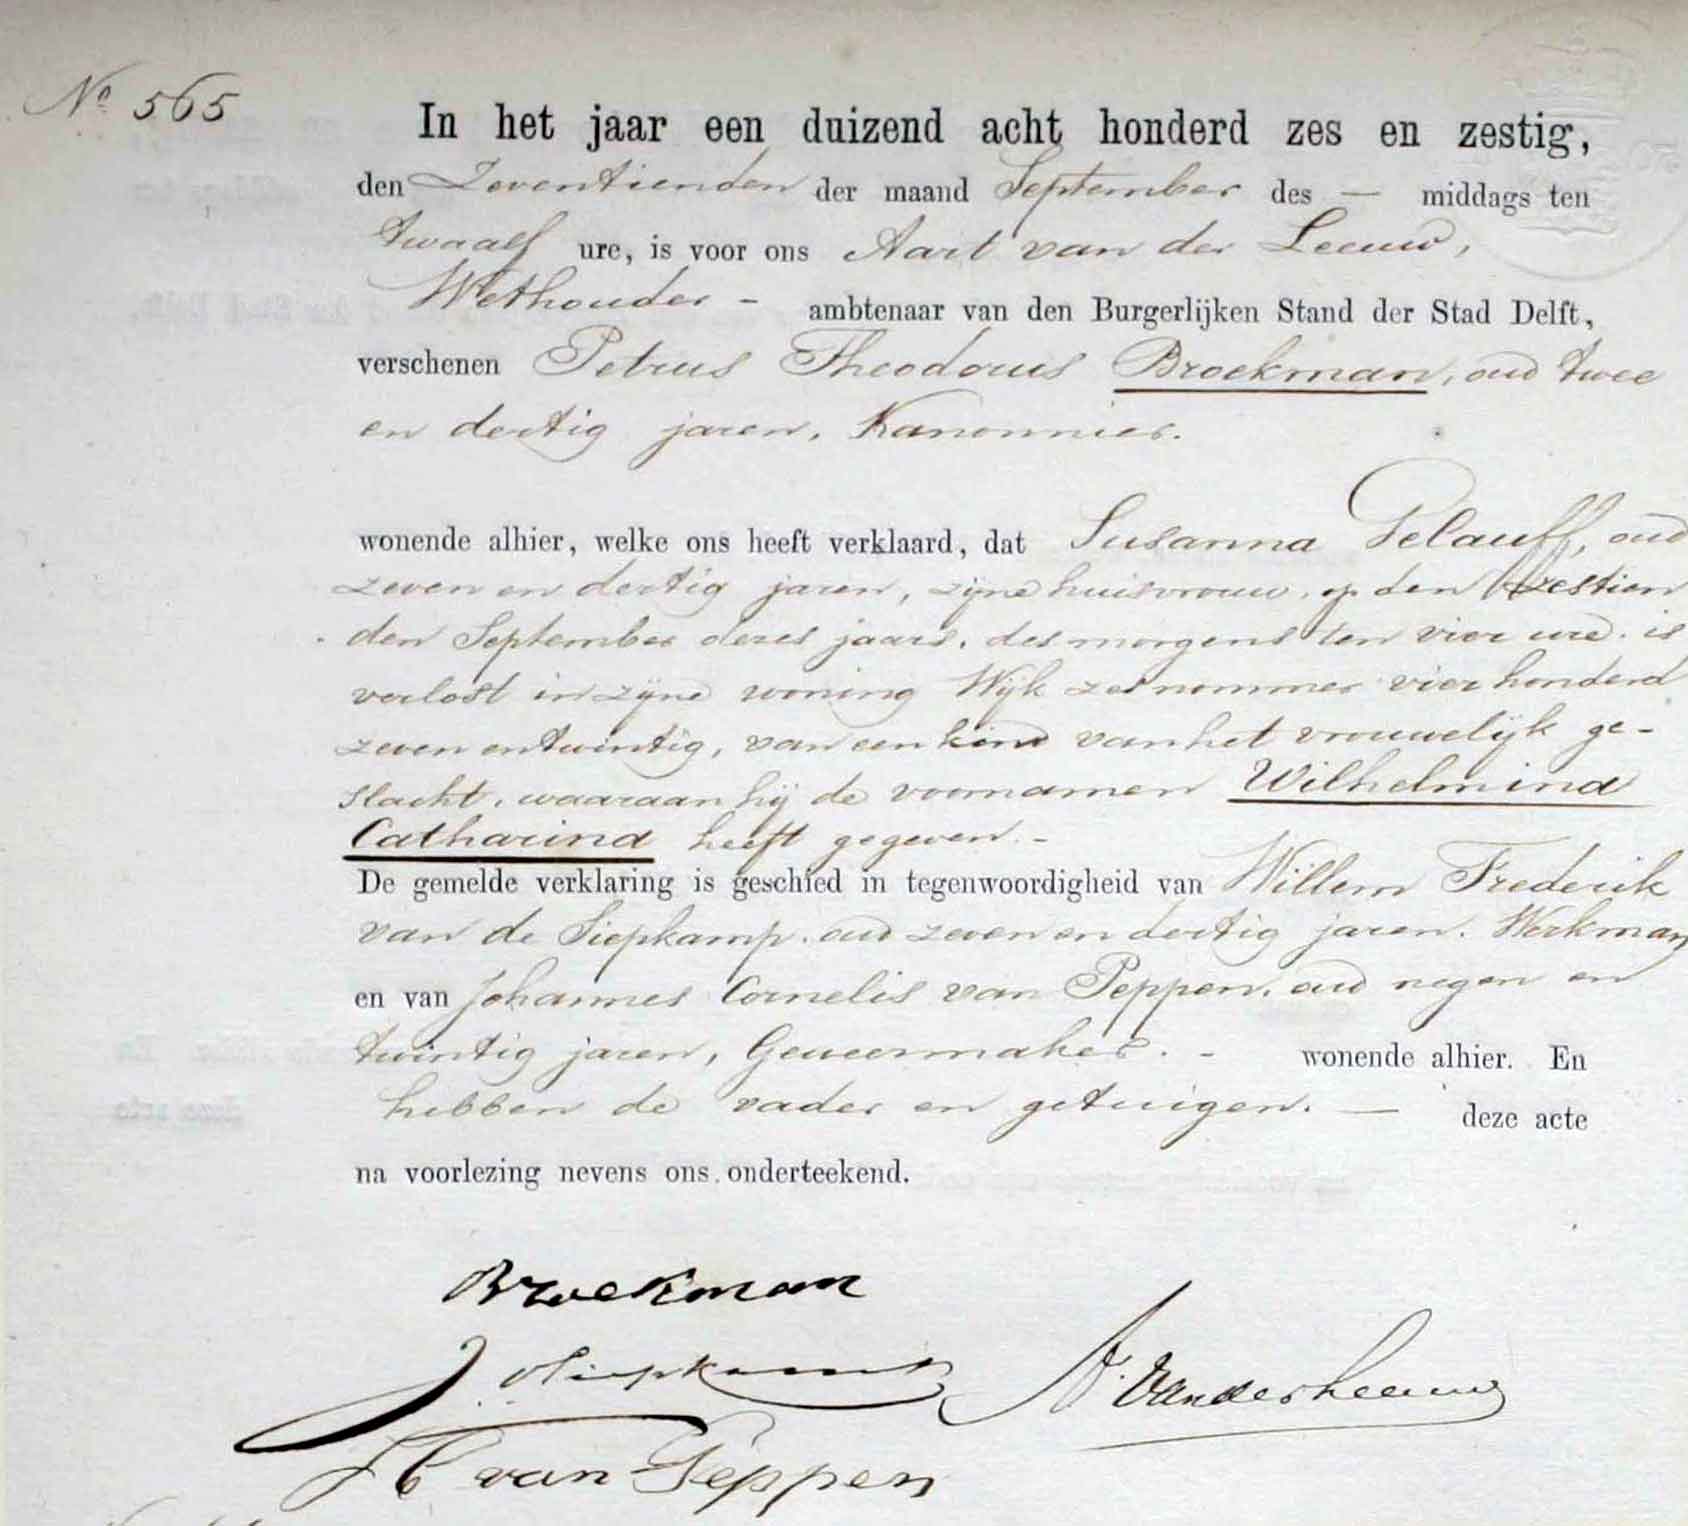 No 565
In het jaar een duizend acht honderd zes en zestig,
den Zeventienden der maand September des — middags ten
twaalf ure, is voor ons Aart van der Leeuw,
Wethouder - ambtenaar van den Burgerlijken Stand der Stad Delft,
verschenen Petrus Theodorus Broekman, oud twee
en dertig jaren, Kanonnier.
wonende alhier, welke ons heeft verklaard, dat Susanna Pelauff, oud
zeven en dertig jaren, zijne huisvrouw, op den zestien
den September dezes jaars, des morgens ten vier ure, is
verlost in zijne woning Wijk zes nommer vier honderd
zeven en twintig, van een kind van het vrouwelijk ge-
slacht, waaraan hij de voornamen Wilhelmina
Catharina heeft gegeven. -
De gemelde verklaring is geschied in tegenwoordigheid van Willem Frederik
van de Siepkamp, oud zeven en dertig jaren, Werkman
en van Johannes Cornelis van Peppen, oud negen en
twintig jaren, Geweermaker. - wonende alhier. En
hebben de vader en getuigen. — deze acte
na voorlezing nevens ons onderteekend.
Broekman
Siepkamp
A. Vanderleeuw
JC van Peppen